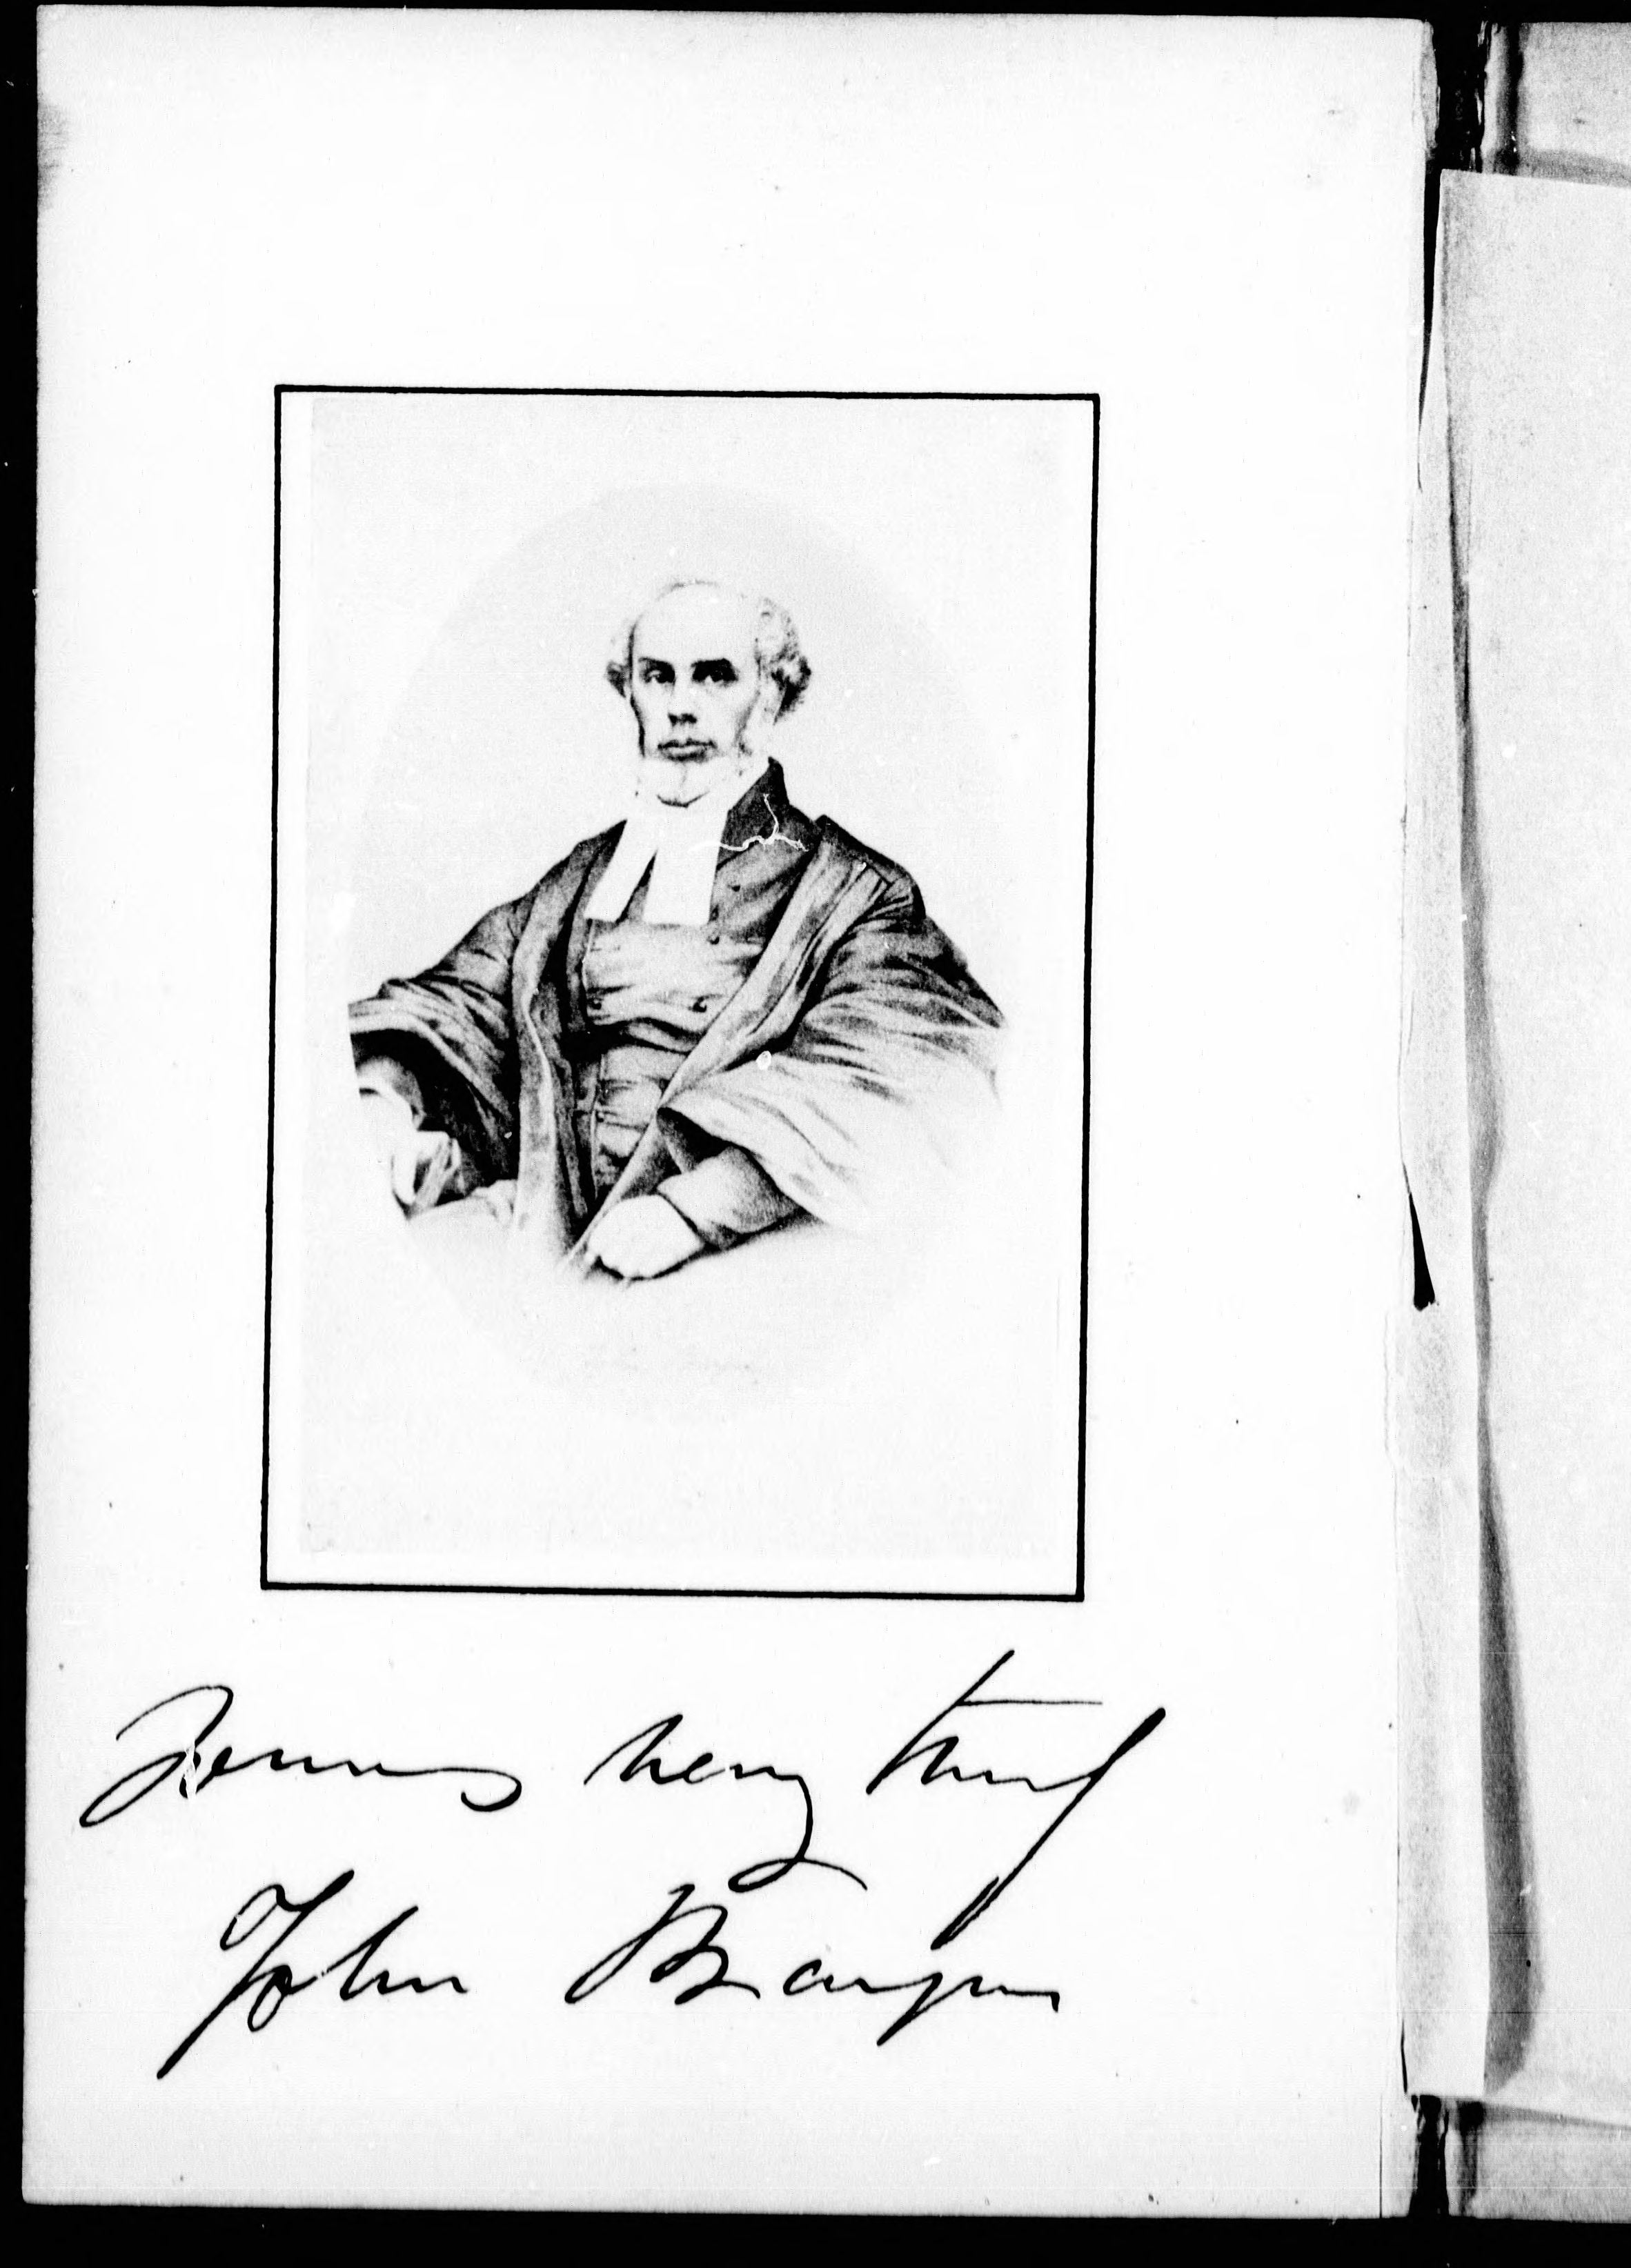 Yours very truly
John Bayne